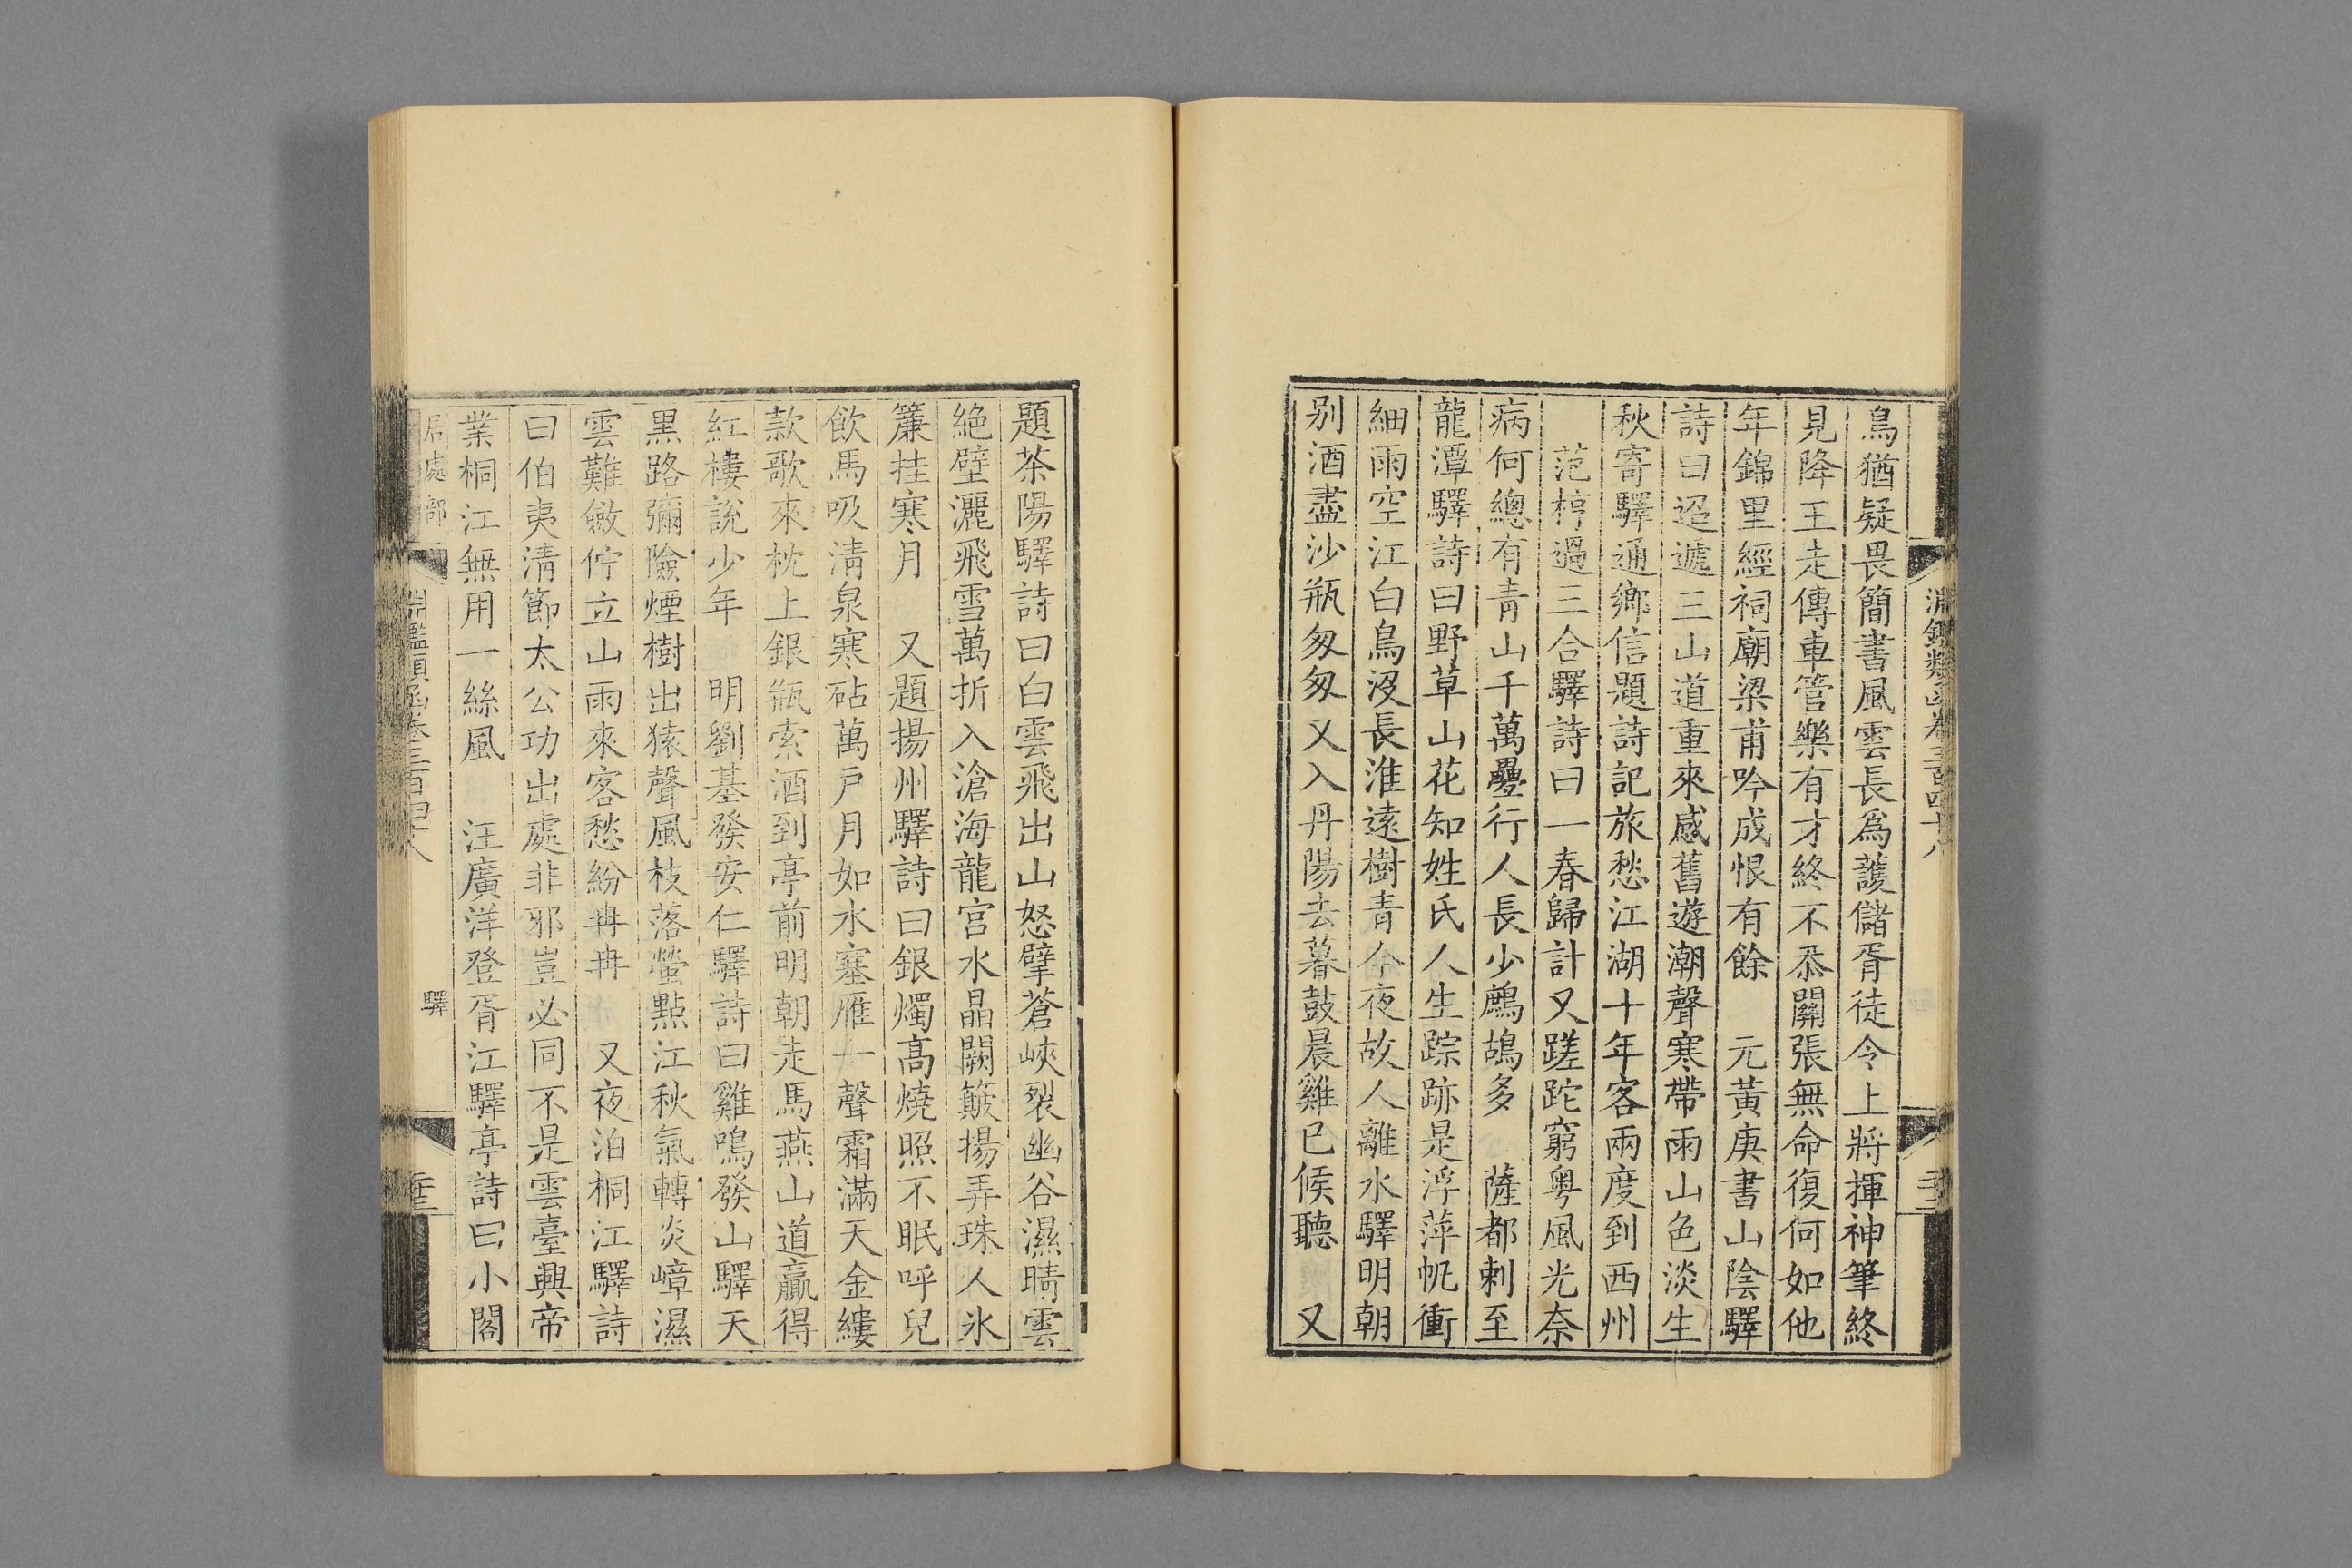 淵鑑類函卷三百四十八
鳥猶疑畏簡書風雲長爲護儲胥徒令上將揮神筆終
見降王走傳車管樂有才終不忝關張無命復何如他
年錦里經祠廟梁甫吟成恨有餘　元黃庚書山陰驛
詩曰迢遞三山道重來感舊遊潮聲寒帶雨山色淡生
秋寄驛通鄉信題詩記旅愁江湖十年客兩度到西州
范梈過三合驛詩曰一春歸計又蹉跎窮粤風光奈
病何總有青山千萬疊行人長少鷓鴣多　薩都剌至
龍潭驛詩曰野草山花知姓氏人生踪跡是浮萍帆衝
細雨空江白鳥沒長淮遠樹青今夜故人離水驛明朝
別酒盡沙瓶匆匆又入丹陽去暮鼓晨雞已候聽　又
題茶陽驛詩曰白雲飛出山怒擘蒼峽裂幽谷濕晴雲
絶壁灑飛雪萬折入滄海龍宮水晶闕簸揚弄珠人氷
簾挂寒月　又題揚州驛詩曰銀燭高燒照不眠呼兒
飲馬吸清泉寒砧萬戸月如水塞雁一聲霜滿天金縷
款歌來枕上銀瓶索酒到亭前明朝走馬燕山道贏得
紅樓說少年　明劉基發安仁驛詩曰雞鳴發山驛天
黑路彌險煙樹出猿聲風枝落螢點江秋氣轉炎嶂濕
雲難斂佇立山雨來客愁紛冉冉　又夜泊桐江驛詩
曰伯夷清節太公功出處非邪豈必同不是雲臺興帝
業桐江無用一絲風　汪廣洋登胥江驛亭詩曰小閣
居處部
淵鑑類函卷三百四十八
驛